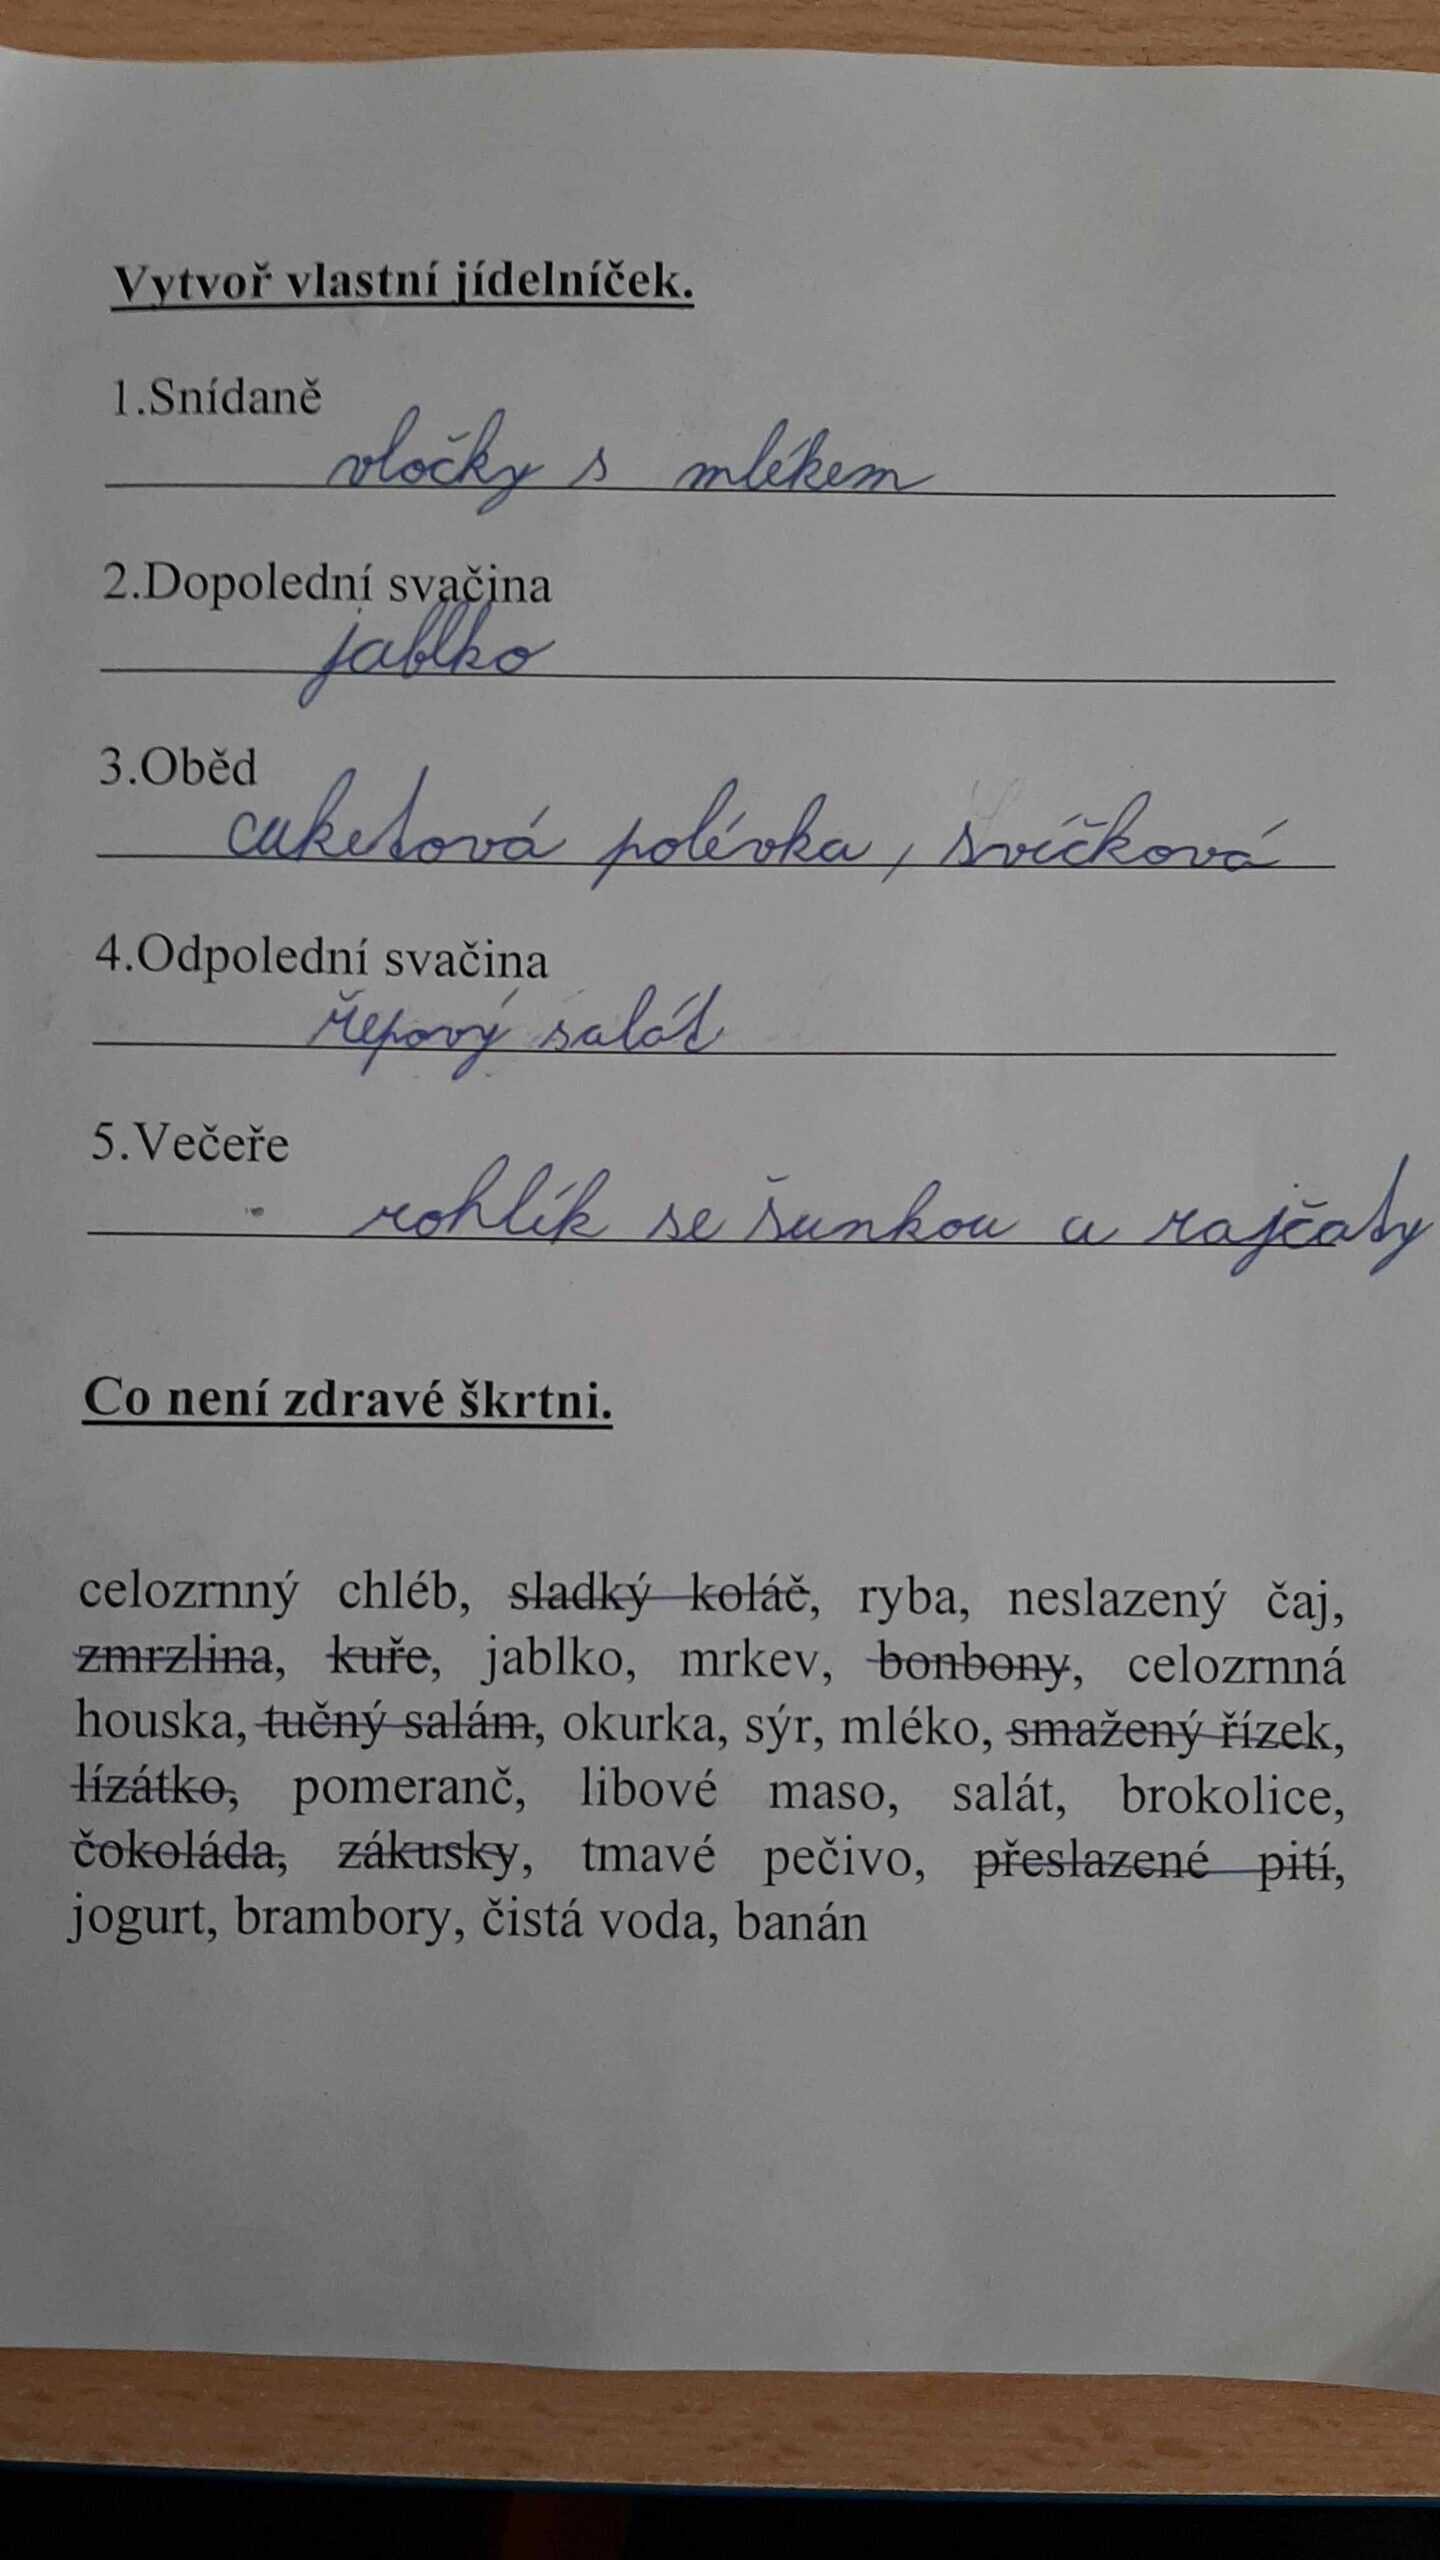 Vytvoř vlastní jídelníček.
1.Snídaně
vločky s mlékem
2.Dopolední svačina
jablko
3.Oběd
cuketová polévka, svíčková
4.Odpolední svačina
řepový salát
5.Večeře
rohlík se šunkou a rajčaty
Co není zdravé škrtni.
celozrnný chléb, sladký koláč, ryba, neslazený čaj,
zmrzlina, kuře, jablko, mrkev, bonbony, celozrnná
houska, tučný salám, okurka, sýr, mléko, smažený řízek,
lízátko, pomeranč, libové maso, salát, brokolice,
čokoláda, zákusky, tmavé pečivo, přeslazené pití,
jogurt, brambory, čistá voda, banán